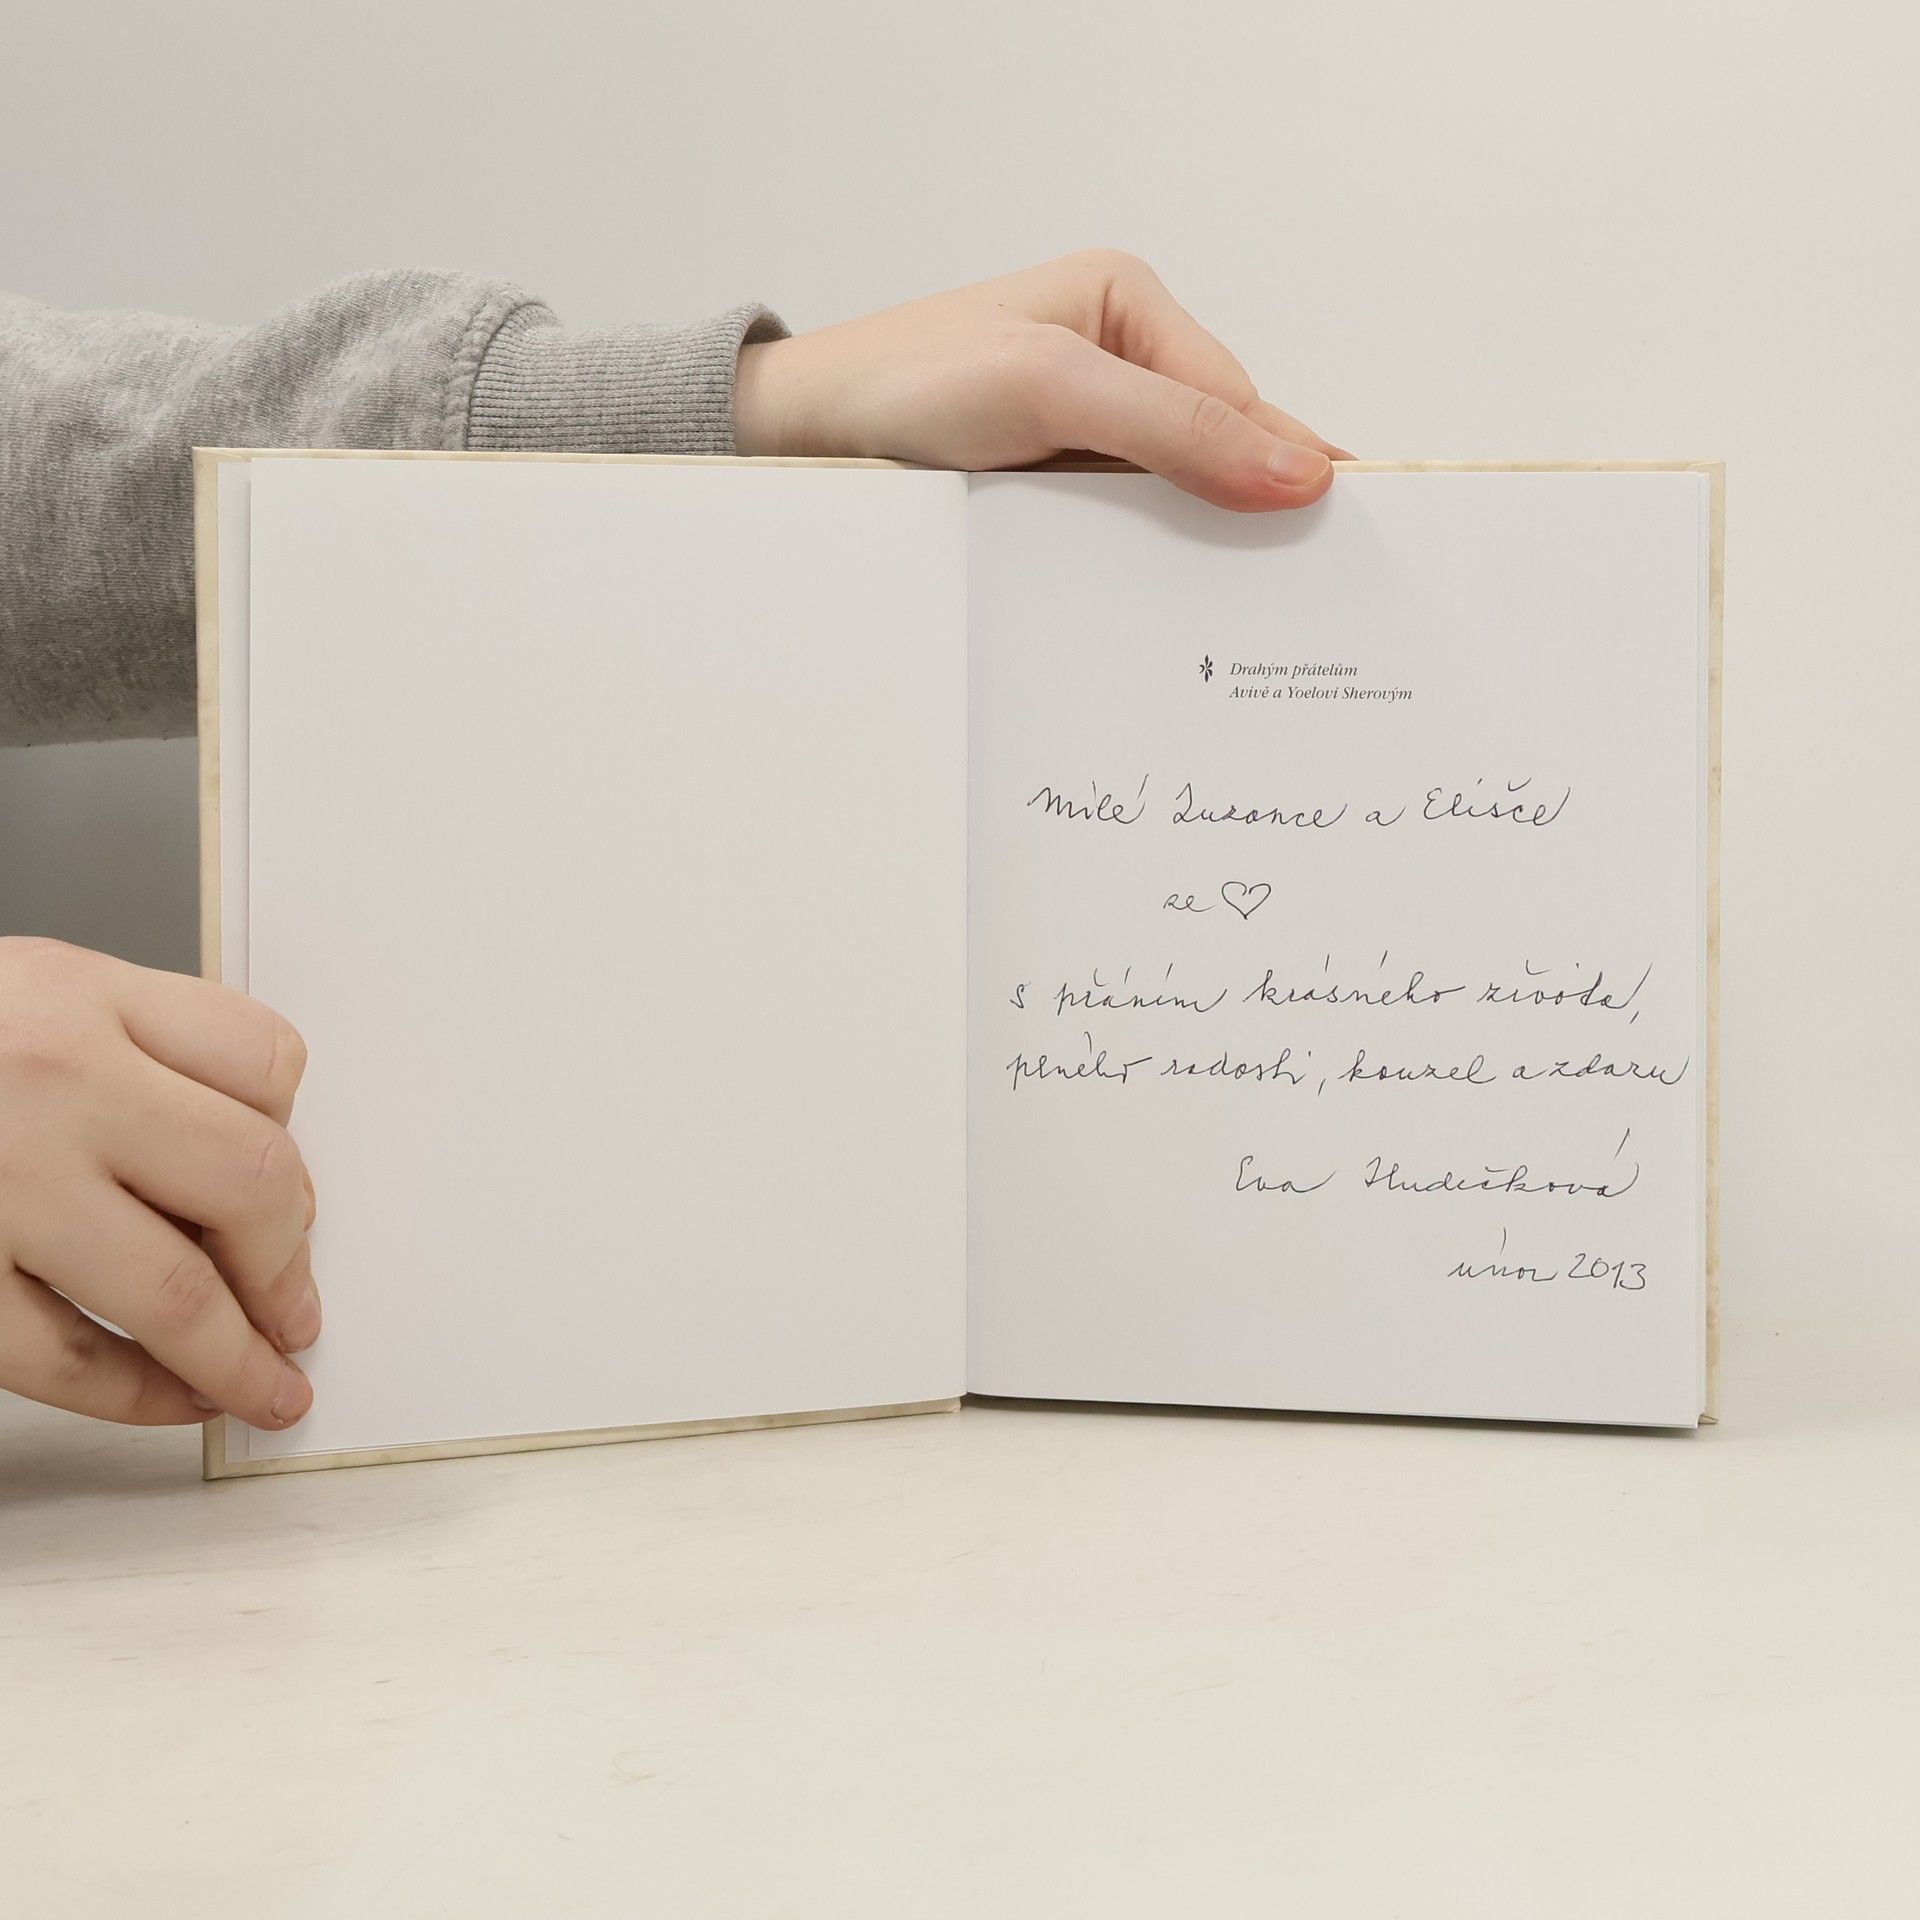 Drahým přátelům
Avivě a Yoelovi Sherovým
Milé Zuzance a Elišce
ze ♡
s přáním krásného života,
plného radosti, kouzel a zdaru
Eva Hudečková
únor 2013